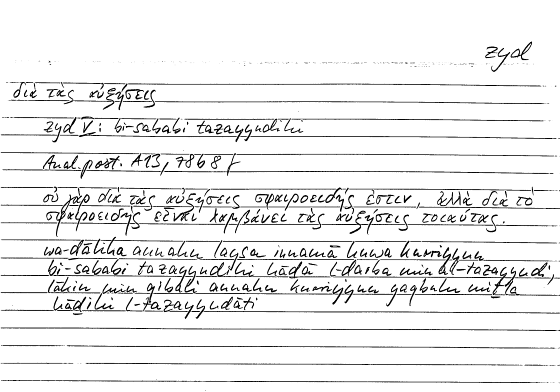 zyd
διὰ τὰς αὐξήσεις
zyd V: bi-sababi tazayyudihi
Anal. post. A13, 78b8f
οὐ γὰρ διὰ τὰς αὐξήσεις σφαιροειδής ἐστιν, ἀλλὰ διὰ τὸ
σφαιροειδὴς εἶναι λαμβάνει τὰς αὐξήσεις τοιαύτας.
wa-ḏālika annahu laysa innamā huwa kurriyyun
bi-sababi tazayyudihi hāḏā l-ḍarba min al-tazayyudi,
lākin min qibali annahu kurriyyun yaqbalu miṯla
hāḏihi l-tazayyudāti